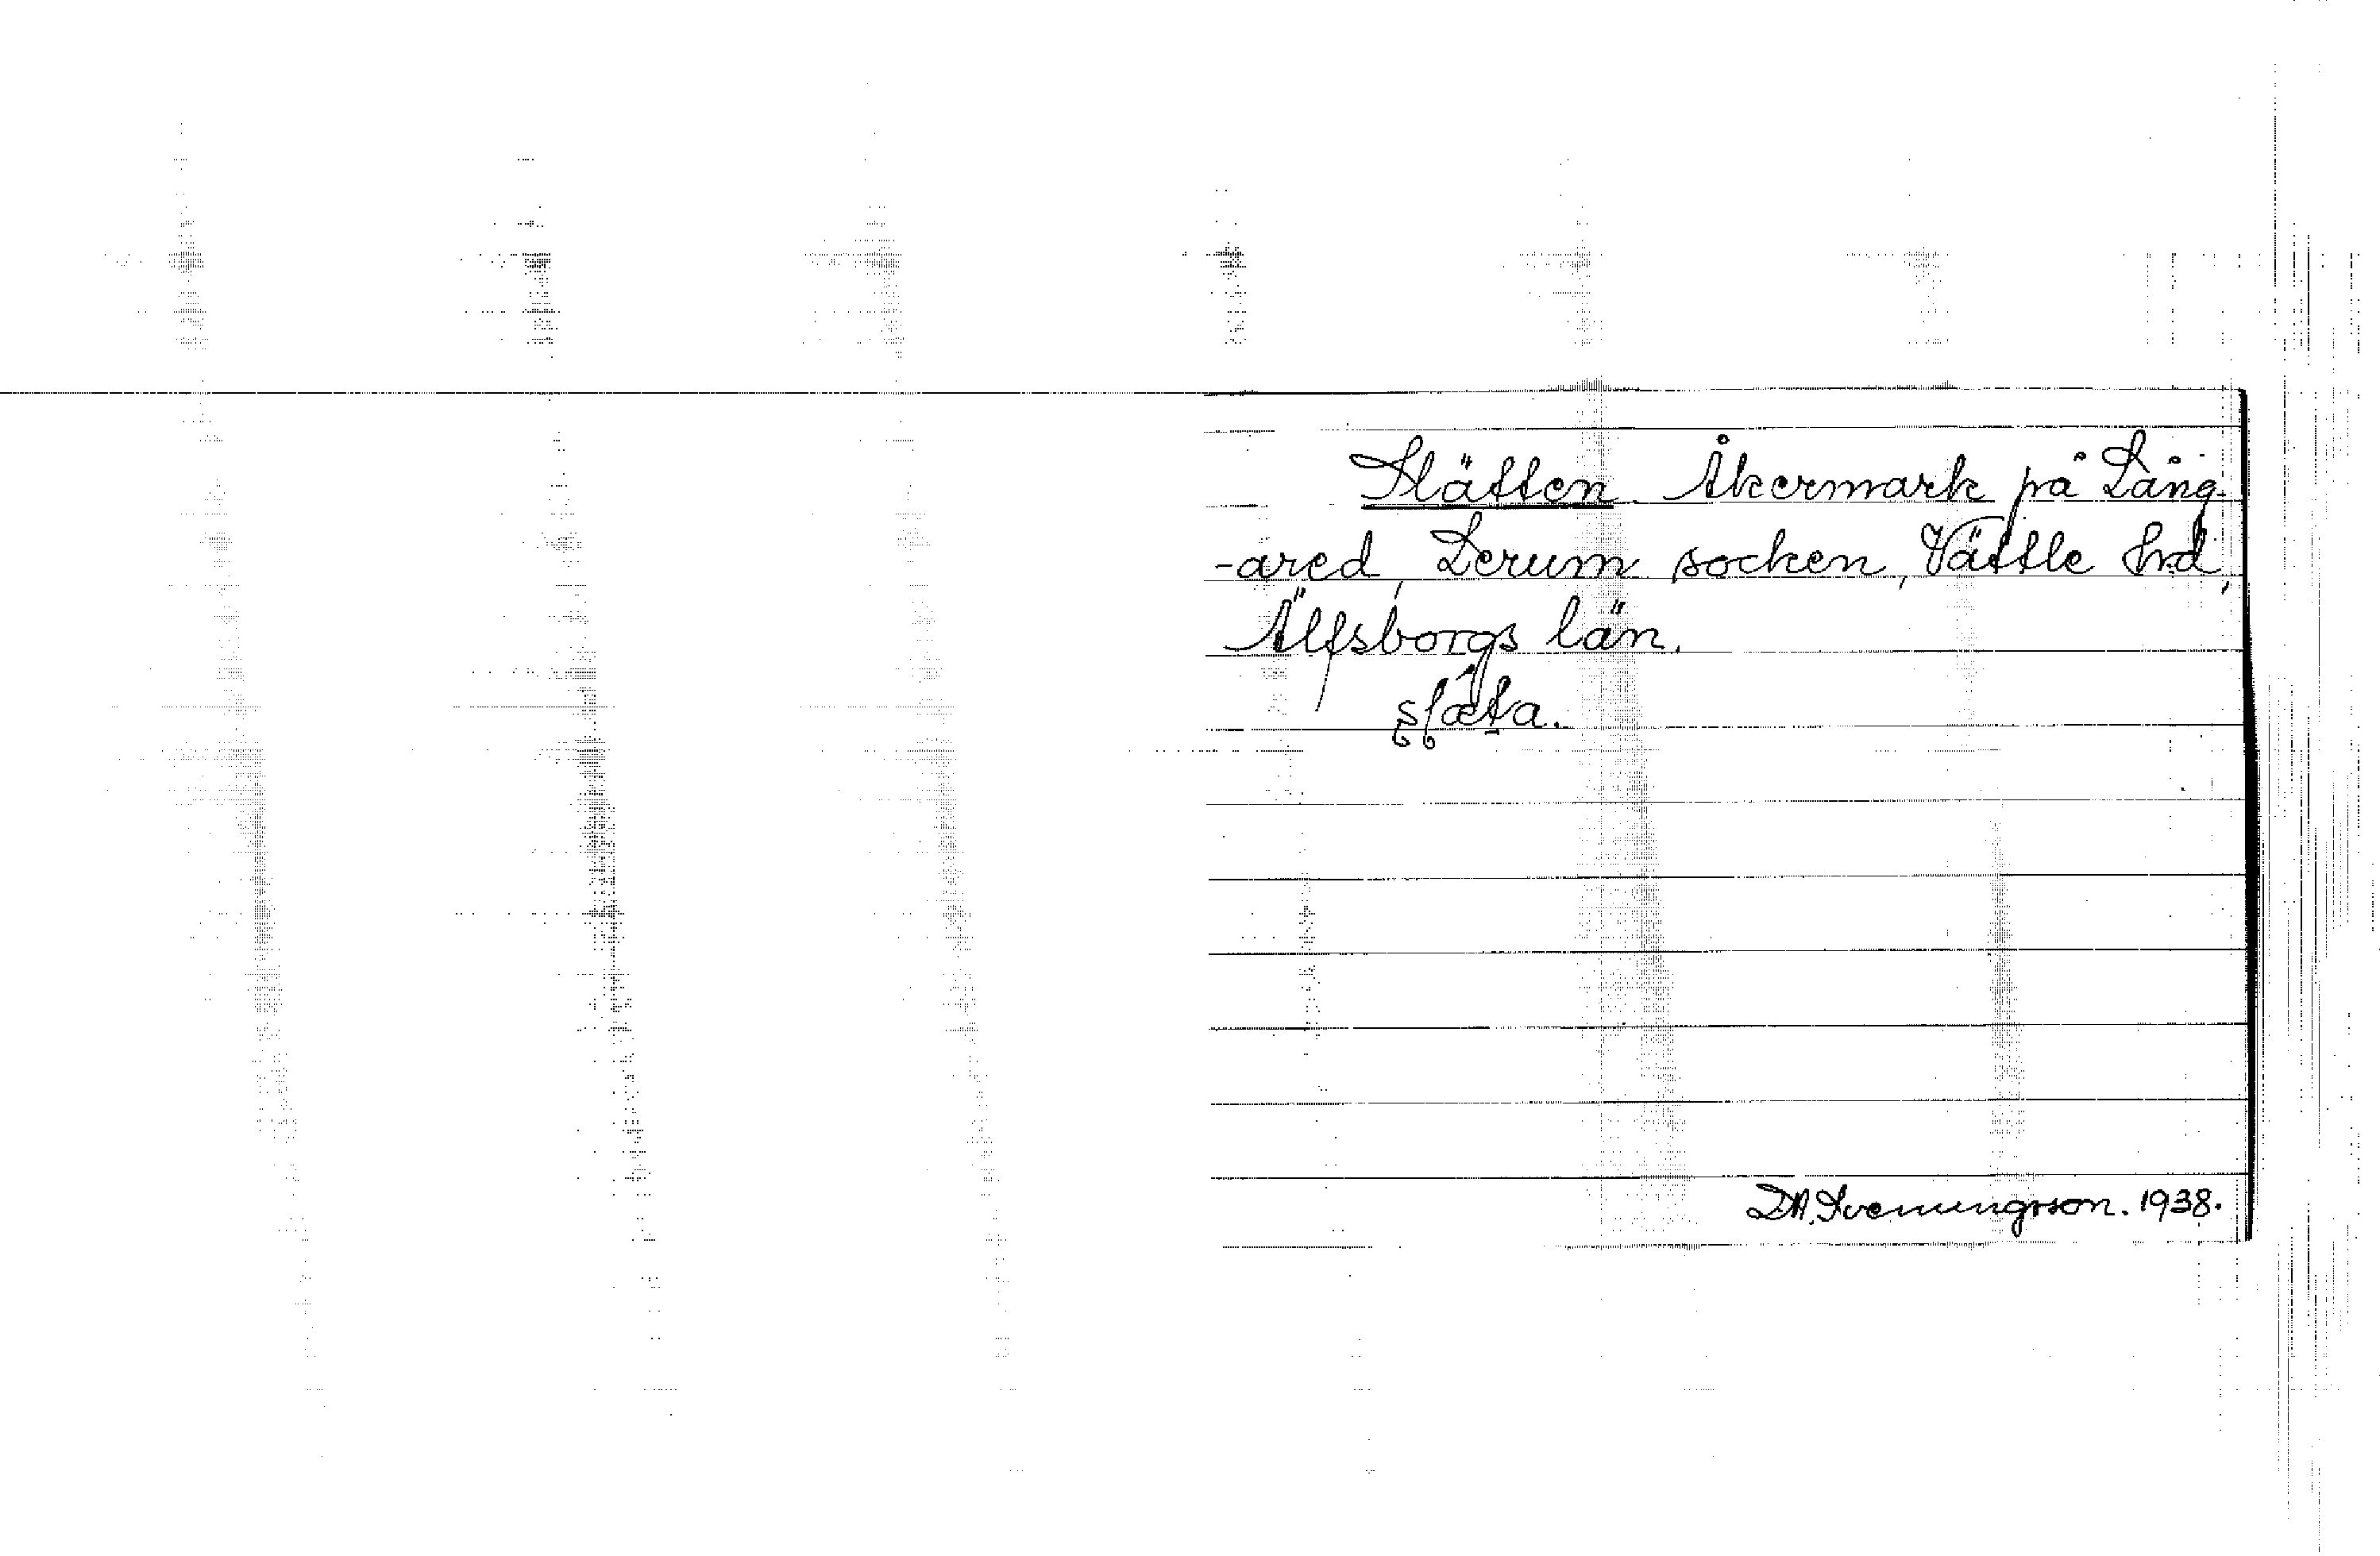 Slätten. Åkermark på Lång-
-ared, Lerum socken, Vättle hrd,
Älfsborgs län.
slæ̀ta.
D.A. Svenungsson. 1938.